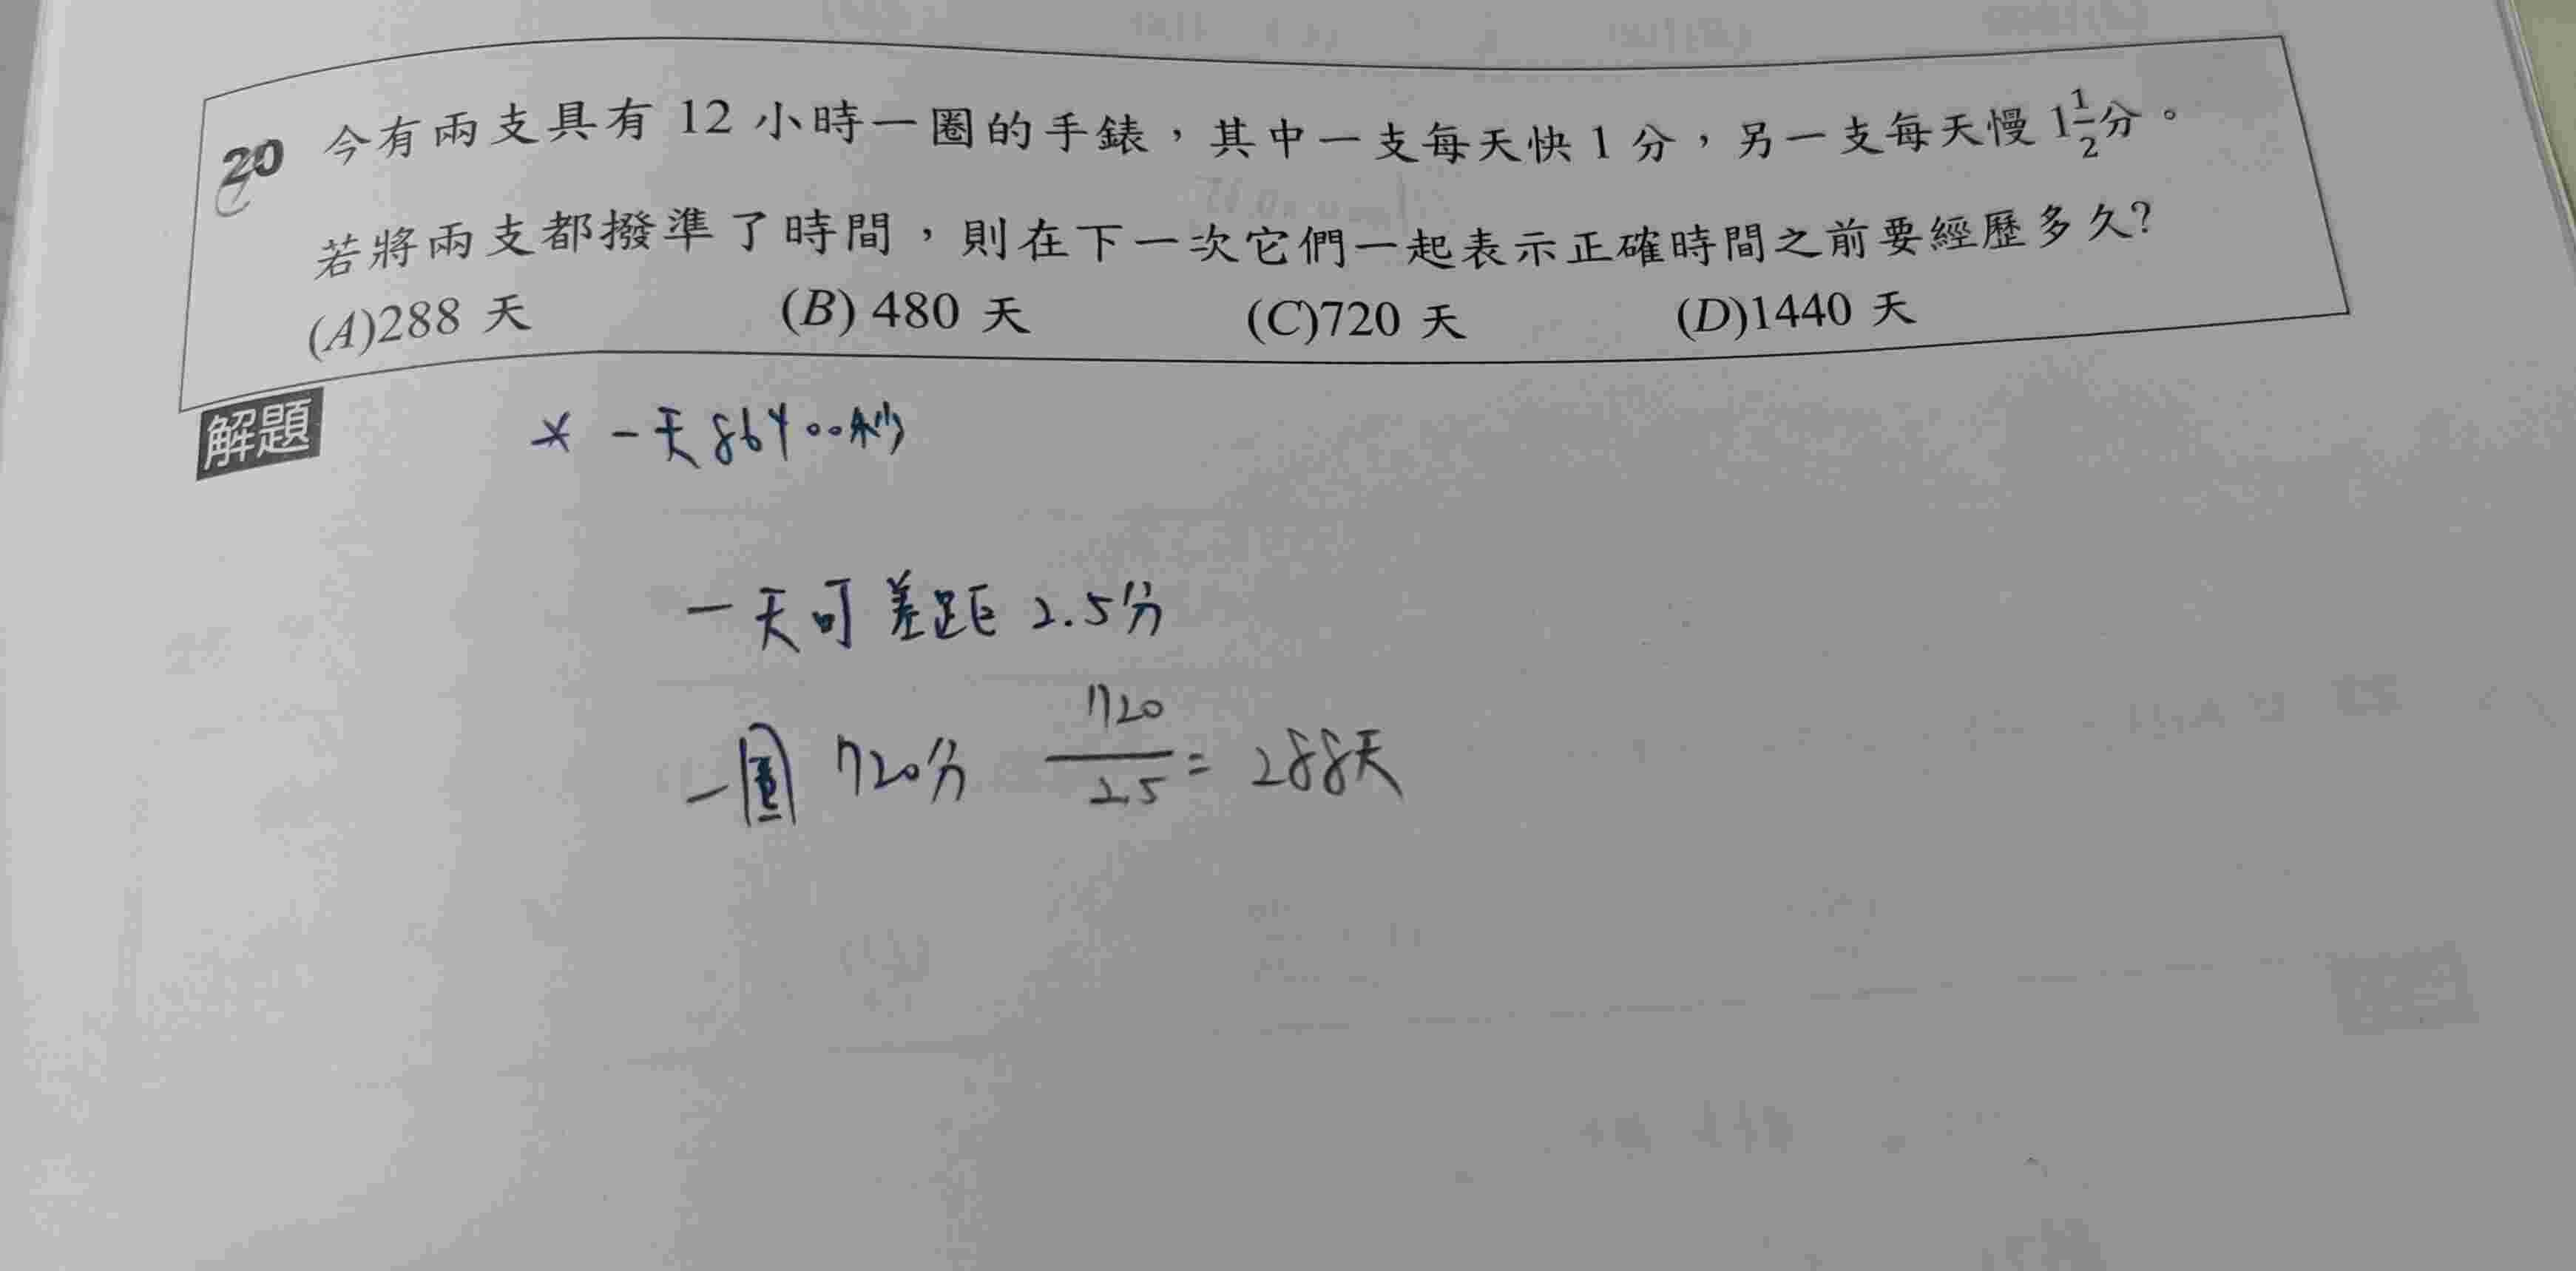 20 今有兩支具有 12 小時一圈的手錶，其中一支每天快 1 分，另一支每天慢 1 1/2 分。
若將兩支都撥準了時間，則在下一次它們一起表示正確時間之前要經歷多久?
(A)288 天 (B) 480 天 (C)720 天 (D)1440 天
解題
* 一天86400秒
一天可差距 2.5分
一圈 720分 720/2.5 = 288天